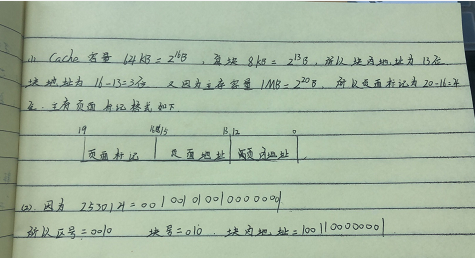 (1) Cache 容量 64KB = 2^16B , 每块 8KB = 2^13B , 所以块内地址为 13位
块地址为 16-13=3位 又因为主存容量 1MB = 2^20B , 所以页面标记为 20-16=4
位. 主存页面标记格式如下
19 16 15 13 12 0
页面标记 页面地址 页内地址
(2) 因为 25301H = 00100101001100000001
所以区号=0010 块号=010 . 块内地址=1001100000001